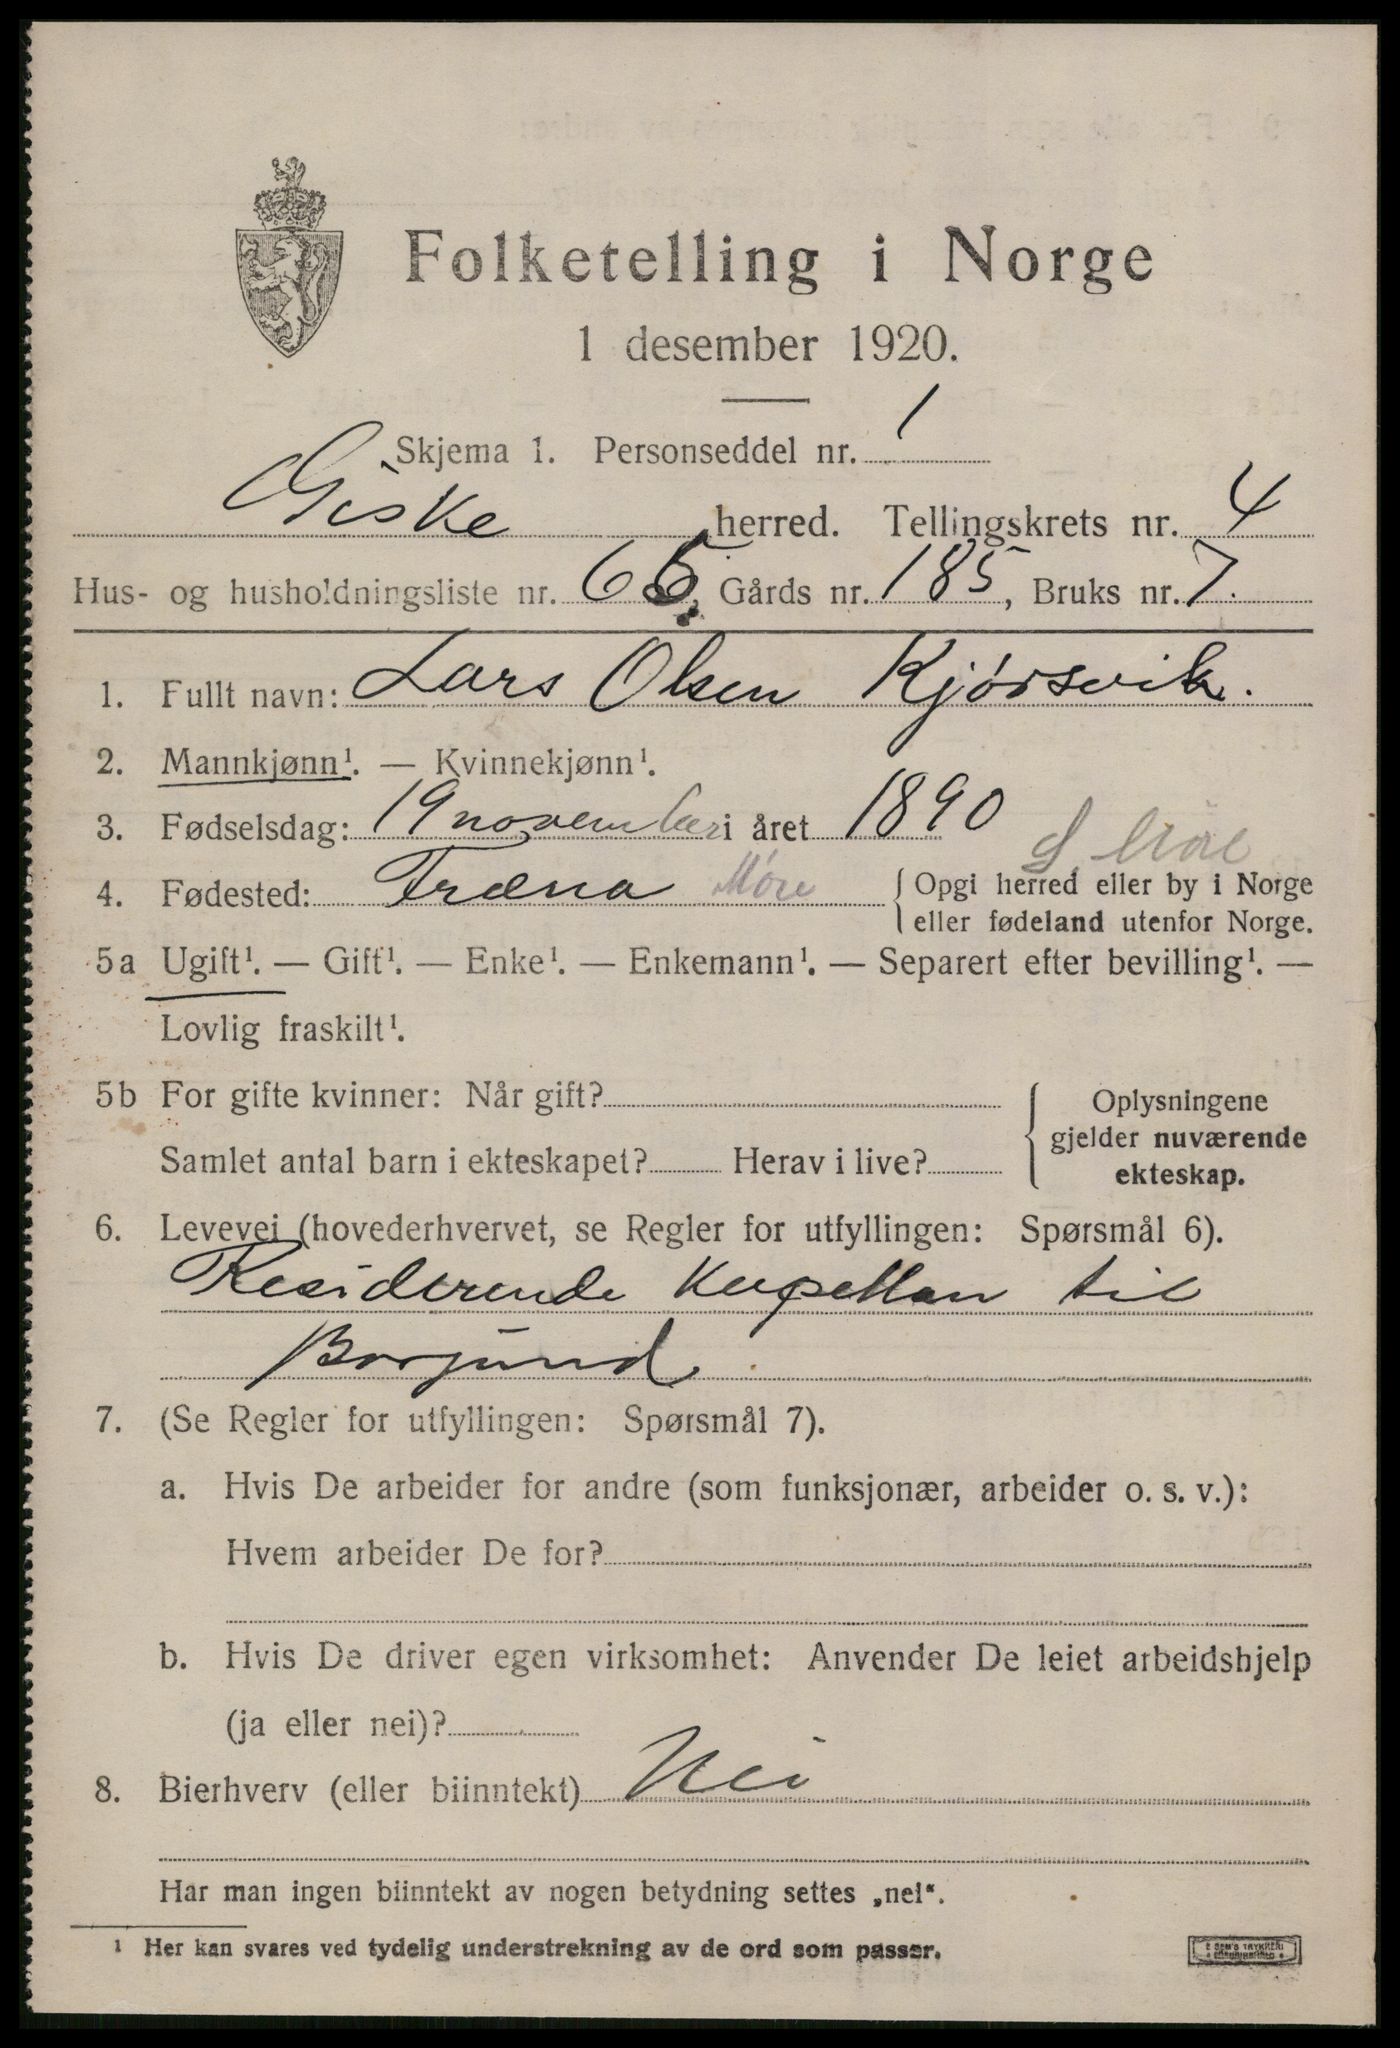 Folketelling i Norge
1 desember 1920.
Skjema 1. Personseddel nr. 1
Giske herred. Tellingskrets nr. 4
Hus- og husholdningsliste nr. 65, Gårds nr. 185, Bruks nr. 7.
1. Fullt navn: Lars Olsen Kjørsvik.
2. Mannkjønn¹. — Kvinnekjønn¹.
3. Fødselsdag: 19 november i året 1890
4. Fødested: Fræna Møre { Opgi herred eller by i Norge
eller fødeland utenfor Norge.
5a Ugift¹. — Gift¹. — Enke¹. — Enkemann¹. — Separert efter bevilling¹. —
Lovlig fraskilt¹.
5b For gifte kvinner: Når gift? { Oplysningene
gjelder nuværende
Samlet antal barn i ekteskapet? Herav i live?
ekteskap.
6. Levevei (hovederhvervet, se Regler for utfyllingen: Spørsmål 6).
Residerende Kapellan til
Borgund
7. (Se Regler for utfyllingen: Spørsmål 7).
a. Hvis De arbeider for andre (som funksjonær, arbeider o. s. v.):
Hvem arbeider De for?
b. Hvis De driver egen virksomhet: Anvender De leiet arbeidshjelp
(ja eller nei)?
8. Bierhverv (eller biinntekt) Nei
Har man ingen biinntekt av nogen betydning settes „nei“.
¹ Her kan svares ved tydelig understrekning av de ord som passer.